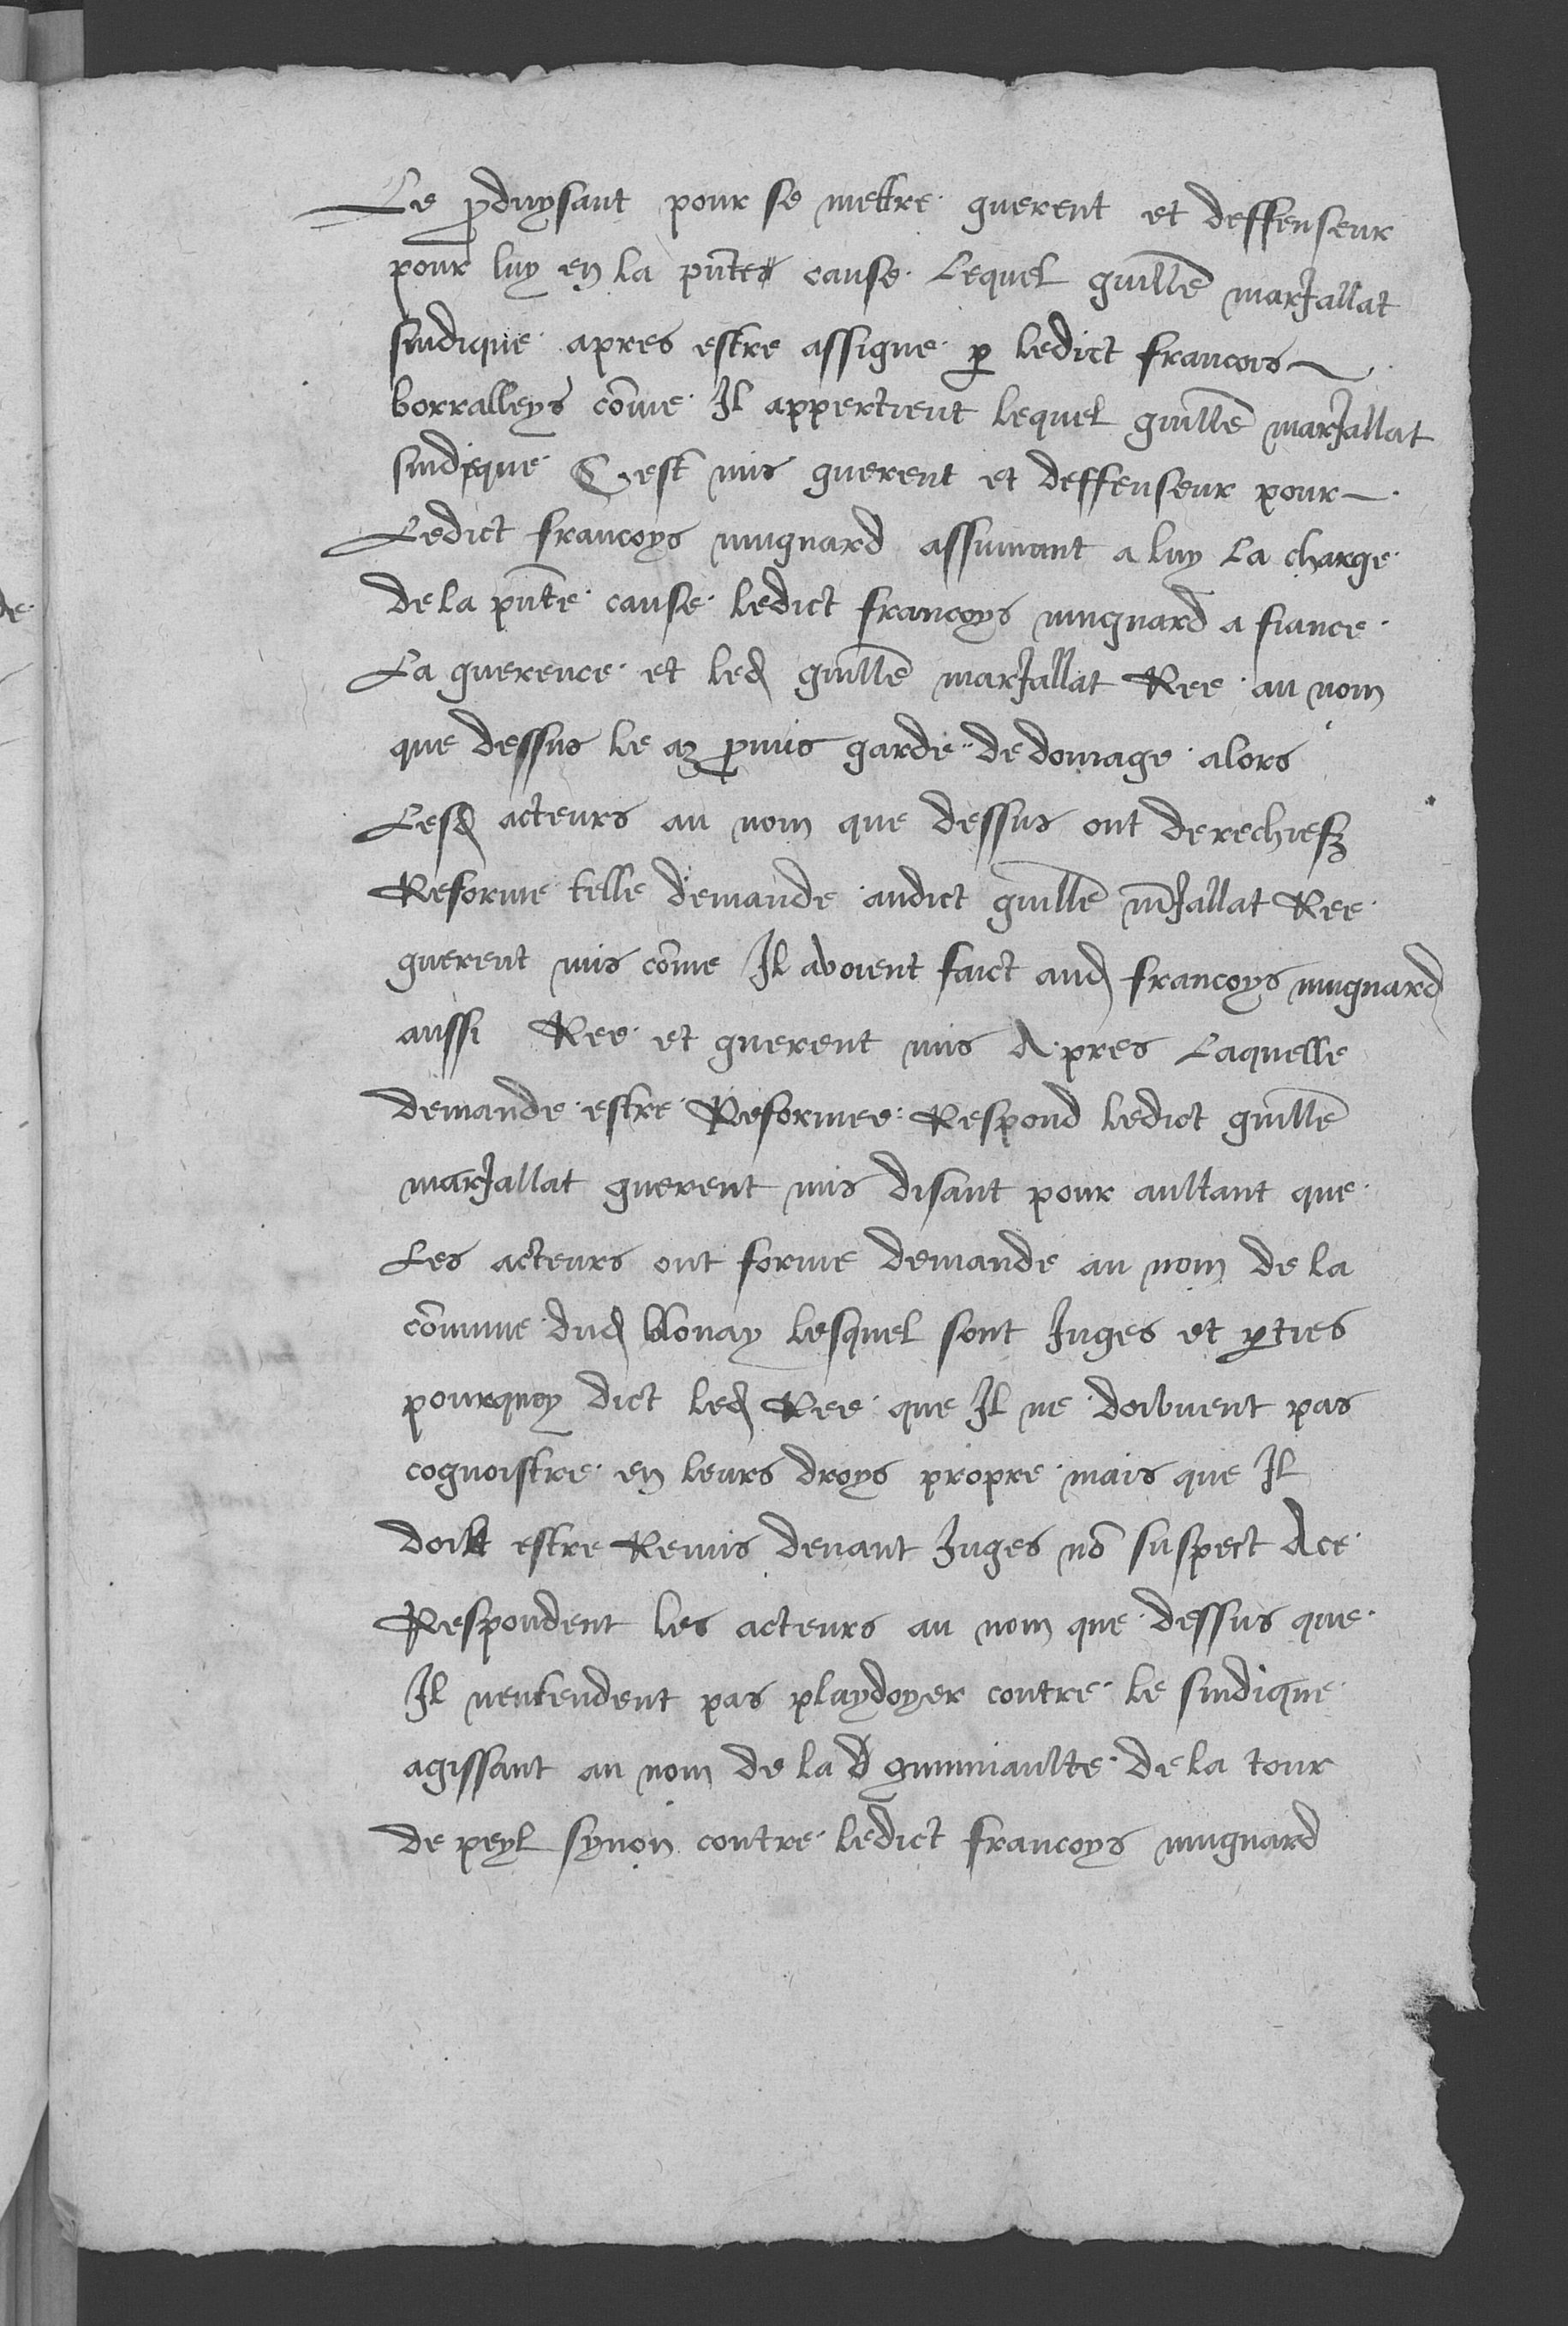 Le produysant pour se mettre guerent et deffenseur
pour luy en la pnte cause Lequel guille marJallat
sindique apres estre assigne p ledict francois
borralleys come Il appertient lequel guille marJallat
sindique C est mis guerent et deffenseur pour
Ledict francoys mugnard assumant a luy La charge
de la pnte cause ledict francoys mugnard a fiance
La guerence et led guille marJallat Ree au nom
que dessus le az pmis garde de domage alors
Lesd acteurs au nom que dessus ont derechiefz
Reforme telle demande audict guille mJallat Ree
guerent mis come Il avoient faict aud francoys mugnard
aussi Ree et guerent mis A pres Laquelle
demande estre Reformee Respond ledict guille
marJallat guerent mis disant pour aultant que
Les acteurs ont forme demande au nom de la
comune dud blonay lesquel sont Juges et pties
pourquoy dict led Ree que Il ne doibvent pas
cognoistre en leurs droys propre mais que Il
doibt estre Remis devant Juges no suspect Ace
Respondent les acteurs au nom que dessus que
Il nentendent pas playdoyer contre le sindique
agissant au nom de la d 9muniaulte de la tour
de peyl synon contre ledict francoys mugnard
de